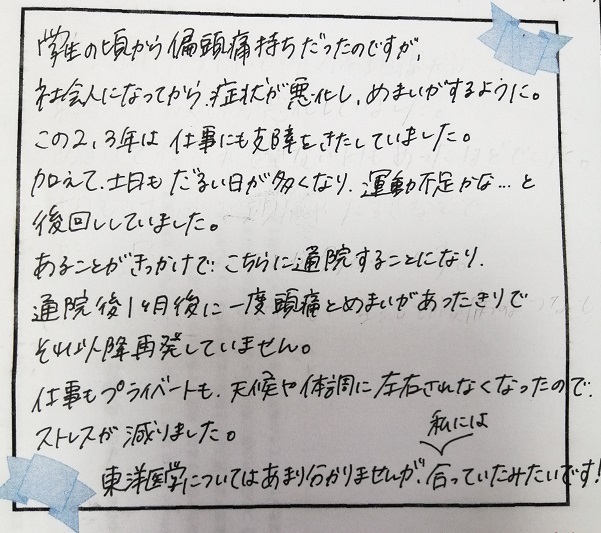 学生の頃から偏頭痛持ちだったのですが、
社会人になってから、症状が悪化し、めまいがするように。
この2、3年は仕事にも支障をきたしていました。
加えて、土日もだるい日が多くなり、運動不足かな…と
後回ししていました。
あることがきっかけで、こちらに通院することになり、
通院後1ヶ月後に一度頭痛とめまいがあったきりで
それ以降再発していません。
仕事もプライベートも、天候や体調に左右されなくなったので、
ストレスが減りました。
私には
東洋医学についてはあまり分かりませんが、合っていたみたいです!